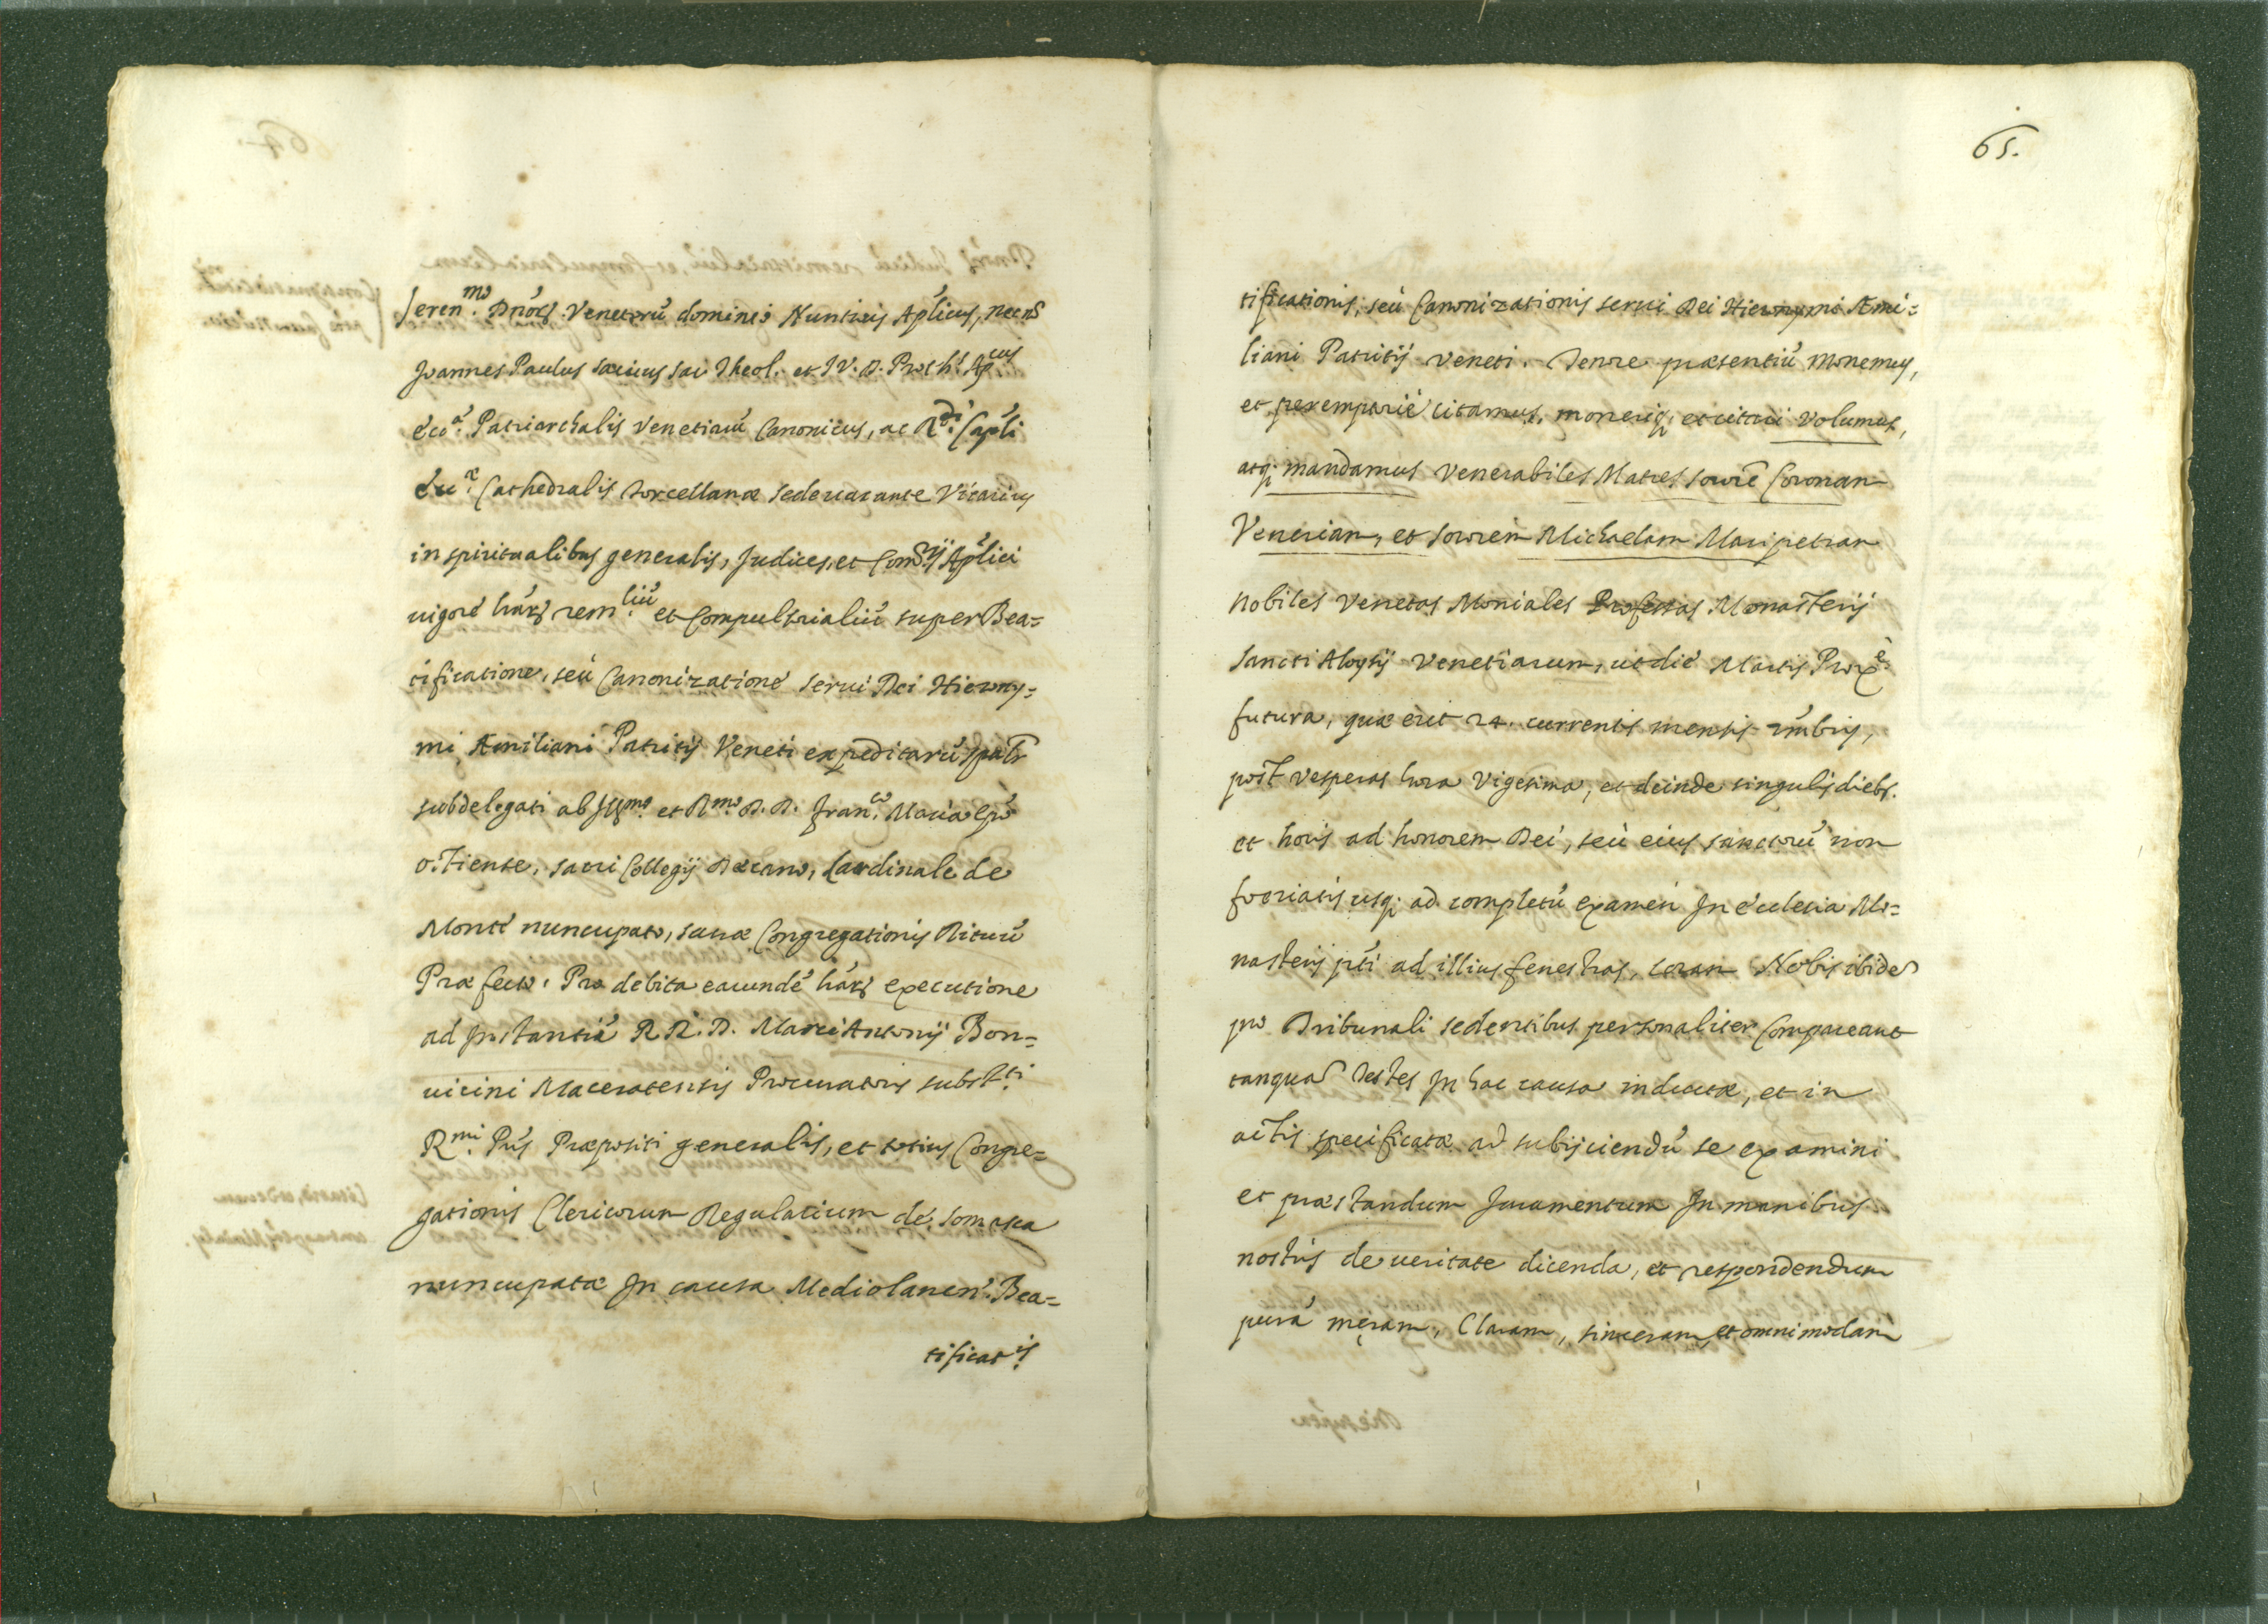 Seren.mo Dnór Venetorú dominio Nuntius Aplicus, necnõ
Joannes Paulus Sac. Theol. et I V. D. Proth.s Ap.cus
écc.æ Patriarchalis Venetiarú Canonicus, ac R.di Capli
écc.æ Cathedralis Torcellanæ sede vacante Vicarius
in spiritualibus generalis, Judices, et Com.rij Aplici
vigoré remliú et Compulsorialiú super Bea=
tificatione, seù Canonizationé Servi Dei Hierony=
mi Æmiliani Patritij Veneti expeditarú
subdelegati ab Ill.mo et R.mo D. D. Fran.co Maria
Ostiense, sacri Collegij Decano, Cardinale de
Monté nuncupato, sacræ Congregationis Rituú
Præfecto. Pro debita earundé executione
ad Instantiá R. D. Marci Antonij Bon=
uicini Maceratensis Procuratoris subst.ti
R.mi Pris Præpositi generalis, et totius Congre=
gationis Clericorum Regularium de Somasca
nuncupatæ In causa Mediolanen. Bea=
tificat.is
65.
tificationis, seù Canonizationis servi Dei Hieronymi Æmi=
liani Patritij Veneti. Tenore præsentiú monemus,
et peremptorié citamus, moneriq; et citari volumus,
atq; mandamus Venerabiles Matres Sororé Coronam
Veneriam, et Sororem Michaelam Maripetram
nobiles Venetas Moniales Professas Monasterij
Sancti Aloysij Venetiarum, ut dié Martis Prox.é
futura, quæ erit 24. currentis mensis
post vesperas hora vigesima, et deinde singulis dieb.
et horis ad honorem Dei, seù eius sanctorú non
foeriatis usq; ad completú examen In ecclesia Mo=
nasterij pti ad illius fenestras, coram Nobis ibidé
pro Tribunali sedentibus personaliter compareant
tanquá Testes In hac causa inductæ, et in
actis specificatæ ad subijciendú se examini
et præstandum Juramentum In manibus
nostris de veritate dicenda, et respondendum
purá meram, Claram, sinceram, et omnimodam